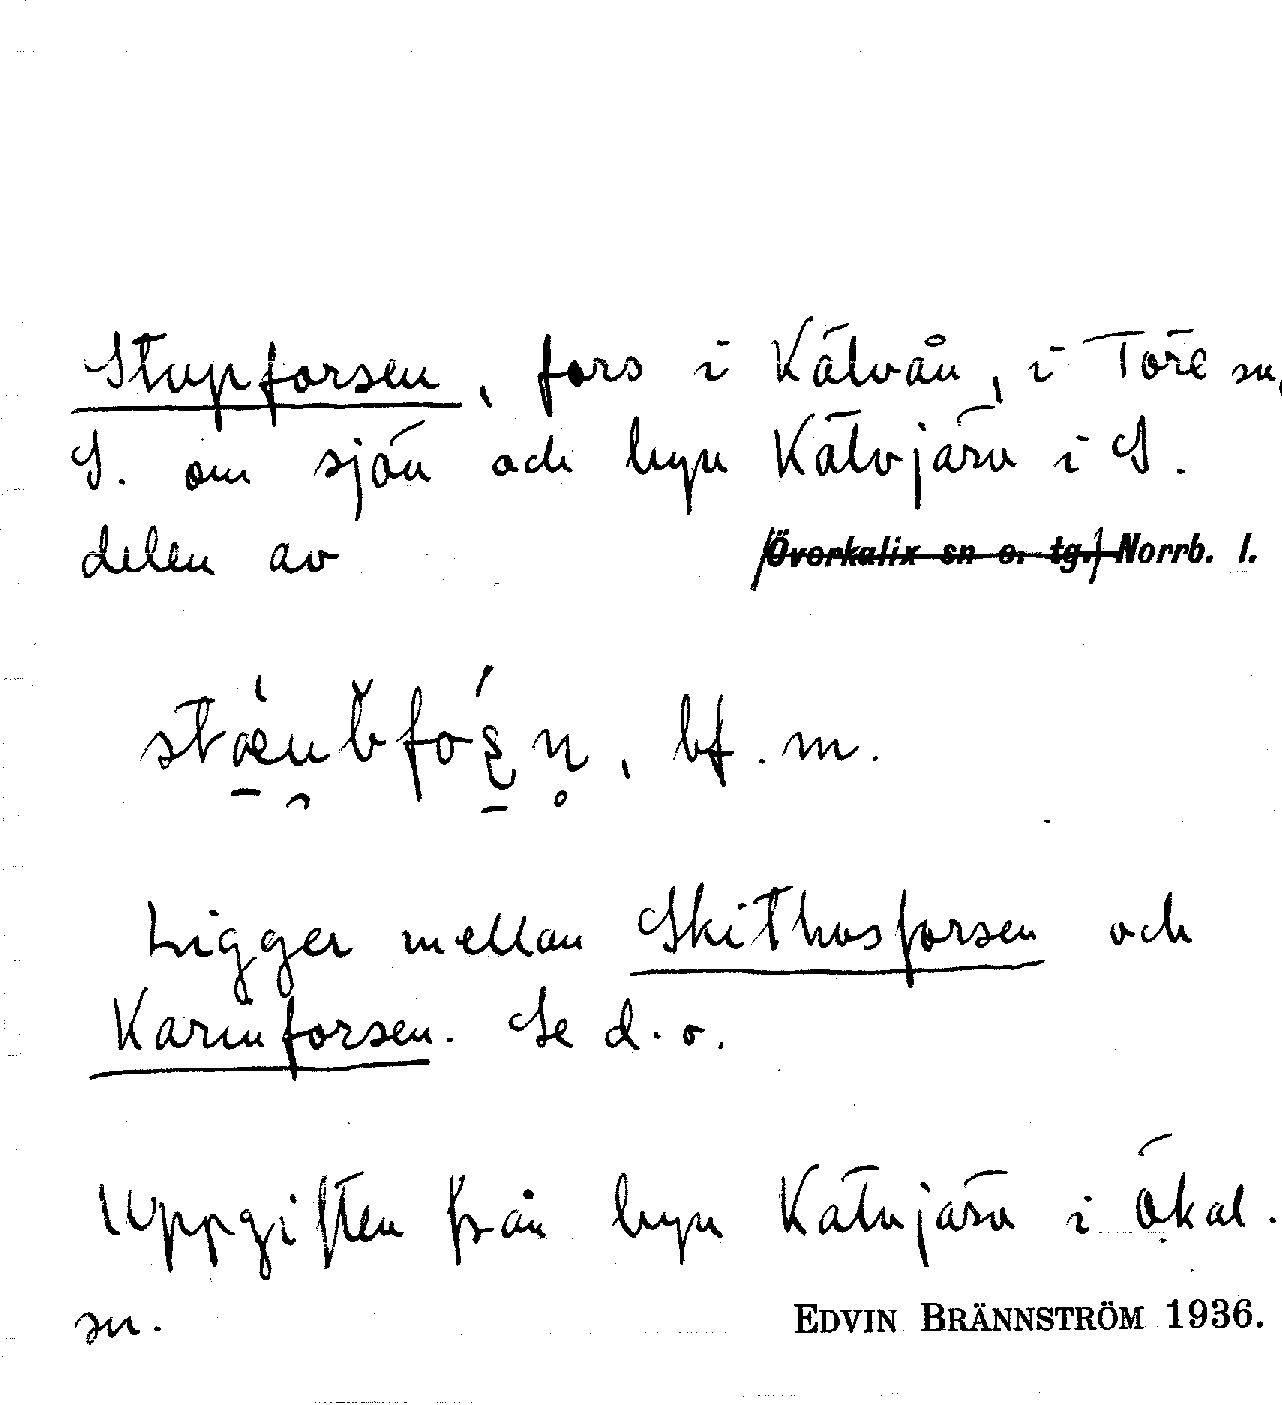 Stupforsen, fors i Kälvån, i Töre sn,
S. om sjön och byn Kälvjärv i S.
delen av /Överkalix sn o. tg./ Norrb. l.
bf. m.
Ligger mellan Skithusforsen och
Karinforsen. Se d. o.
Uppgiften från byn Kälvjärv i Ökal.
sn.
EDVIN BRÄNNSTRÖM 1936.